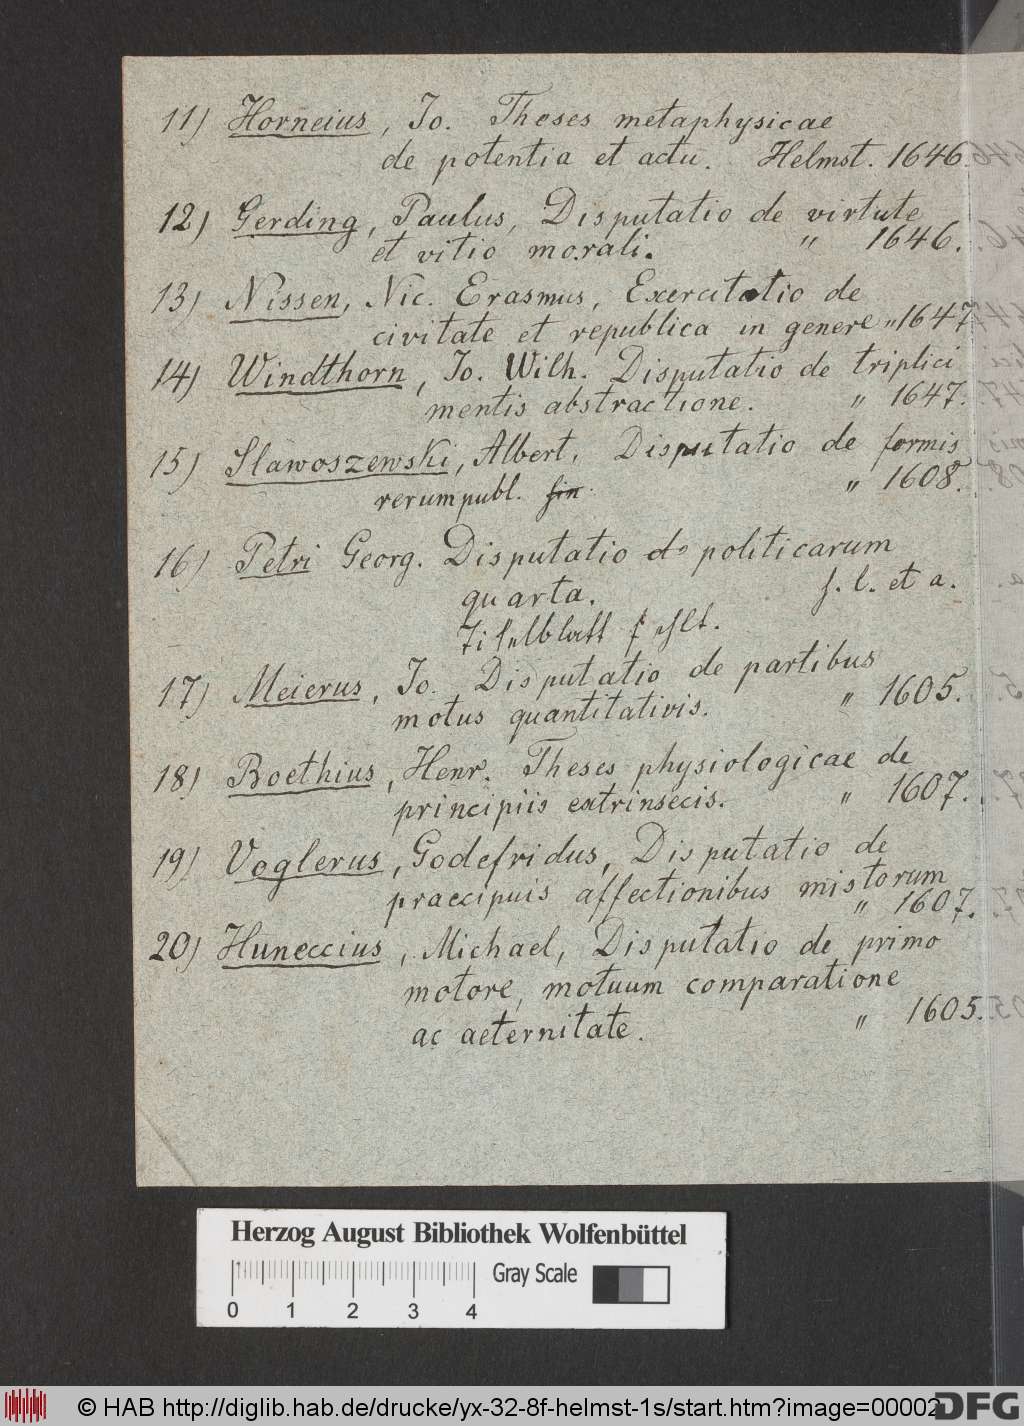 11) Horneius, Jo. Theses metaphysicae
de potentia et actu. Helmst. 1646.
12) Gerding, Paulus, Disputatio de virtute
et vitio morali. " 1646.
13) Nissen, Nic. Erasmus, Exercitatio de
civitate et republica in genere " 1647
14) Windthorn, Jo. Wilh. Disputatio de triplici
mentis abstractione. " 1647.
15) Slawoszewski, Albert, Disputatio de formis
rerumpubl. fin. " 1608.
16) Petri Georg. Disputatio do politicarum
quarta. s. l. et a.
Titelblatt fehlt.
17) Meierus, Jo. Disputatio de partibus
motus quantitativis. " 1605.
18) Boethius, Henr. Theses physiologicae de
principiis extrinsecis. " 1607.
19) Voglerus, Godefridus, Disputatio de
praecipuis affectionibus mistorum
" 1607.
20) Huneccius, Michael, Disputatio de primo
motore, motuum comparatione
ac aeternitate. " 1605.
Herzog August Bibliothek Wolfenbüttel
Gray Scale
0 1 2 3 4
© HAB http://diglib.hab.de/drucke/yx-32-8f-helmst-1s/start.htm?image=00002
DFG